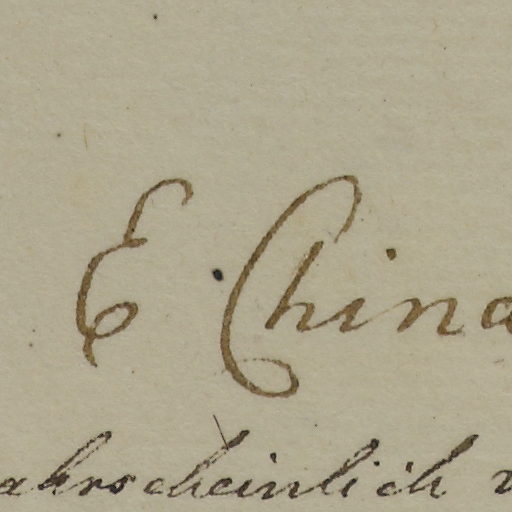 E China
ahrscheinlich